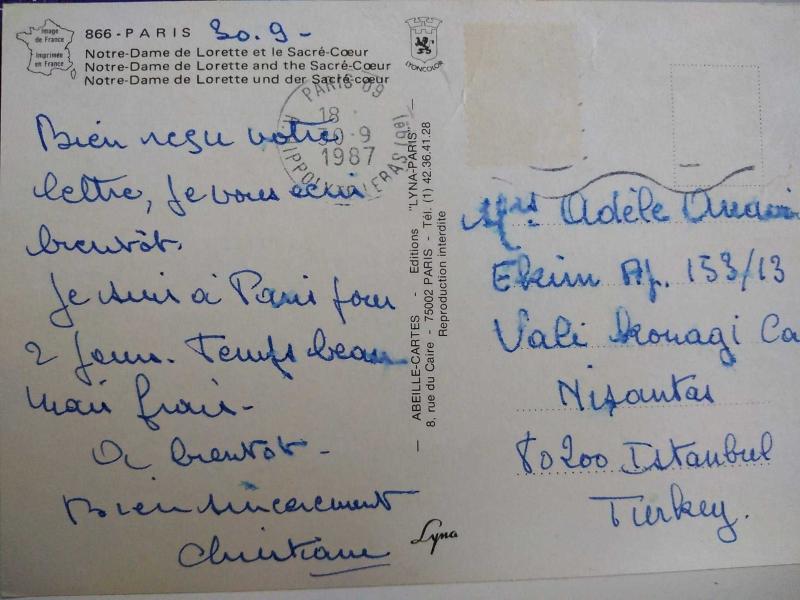 Image
de France
Imprimée
en France
866 - PARIS 30.9-
Notre-Dame de Lorette et le Sacré-Cœur
Notre-Dame de Lorette and the Sacré-Cœur
Notre-Dame de Lorette und der Sacré-cœur
LYONCOLOR
PARIS 09
18
30-9
1987
R. HIPPOLYTE LEBAS (9e)
Bien reçu votre
lettre, je vous écris
bientôt.
Je suis à Paris pour
2 jours. Temps beau
mais frais -
A bientôt -
Bien sincèrement
Christiane
— ABEILLE-CARTES - Editions "LYNA-PARIS" —
8, rue du Caire - 75002 PARIS - Tél. (1) 42.36.41.28
Reproduction interdite
Lyna
Adèle
Ekim Ap. 153/13
Vali Konagi Ca
Nisantas
80200 Istanbul
Turkey.